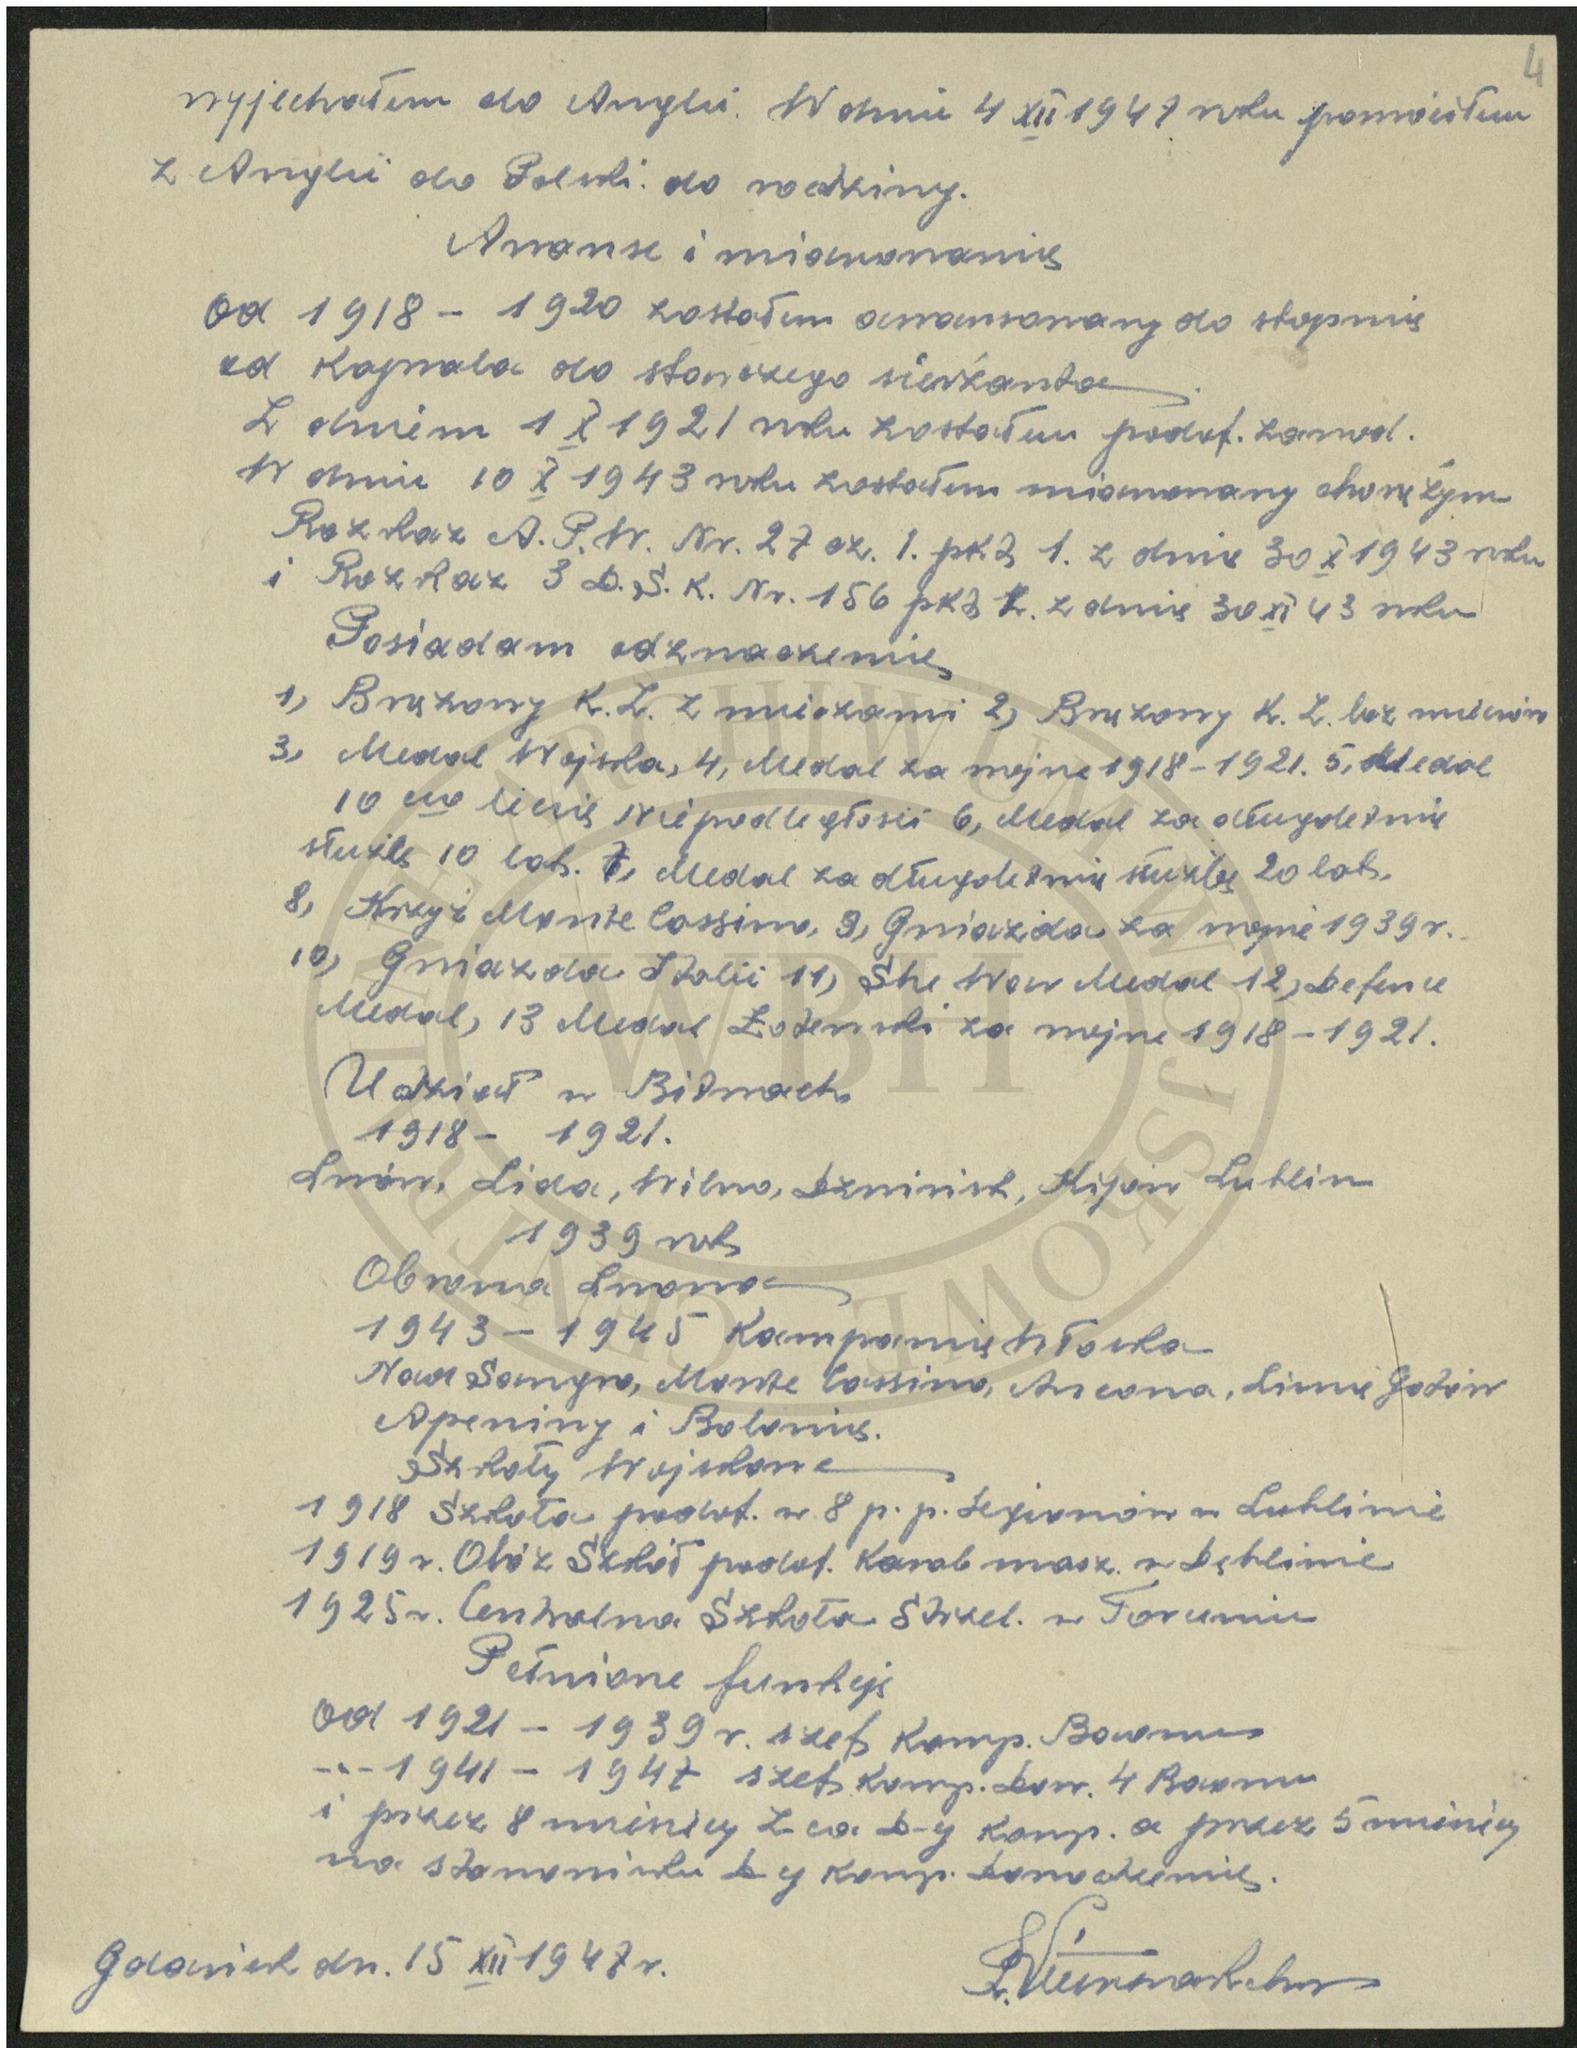 4
wyjechałem do Anglii. W dniu 4 XII 1947 roku powróciłem
z Anglii do Polski. do rodziny.
Awanse i mianowanie
Od 1918 - 1920 zostałem awansowany do stopnie
od Kaprala do starszego sierżanta
Z dniem 1 X 1921 roku zostałem podof. zawod.
W dniu 10 X 1943 roku zostałem mianowany chorążym
Rozkaz A.P.W. Nr. 27 cz. 1. pkt 1. z dnie 30 X 1943 roku
i Rozkaz 3 D.S.K. Nr. 156 pkt z dnie 30 XI 43 roku
Posiadam odznaczenie
1, Brązowy K.Z. z mieczami 2, Brązowy K.Z. bez mieczów
3, Medal Wojska, 4, Medal za wojnę 1918-1921. 5, Medal
10 cio lecie Niepodległości 6, Medal za długoletnie
służbę 10 lat. 7, Medal za długoletnie służbę 20 lat.
8, Krzyż Monte Cassino, 9, Gwiazda za wojnę 1939 r.
10, Gwiazda Italii 11, She War Medal 12, Defence
Medal, 13 Medal Łotewski za wojne 1918-1921.
Udział w Bitwach
1918 - 1921.
Lwów, Lida, Wilno, Dźwińsk, Kijów Lublin
1939 rok
Obrona Lwowa
1943 - 1945 Kampanie Włoska
Nad Sangro, Monte Cassino, Ancona, Linie Gotów
Apeniny i Bolonie.
Szkoły Wojskowe
1918 Szkoła podof. w 8 p.p. Legionów w Lublinie
1919 r. Obóz Szkół podof. Karab masz. w Dęblinie
1925 r. Centralna Szkoła Strzel. w Toruniu
Pełnione funkcje
Od 1921 - 1939 r. szef Komp. Baonu
-"- 1941 - 1947 szef Komp. Dow. 4 Baonu
i przez 8 miesięcy Z-ca D-cy Komp. a przez 5 miesięcy
na stanowisku D-cy Komp. Dowodzenie.
Gdańsk dn. 15 XII 1947 r.
WBH
CENTRALNE ARCHIWUM WOJSKOWE